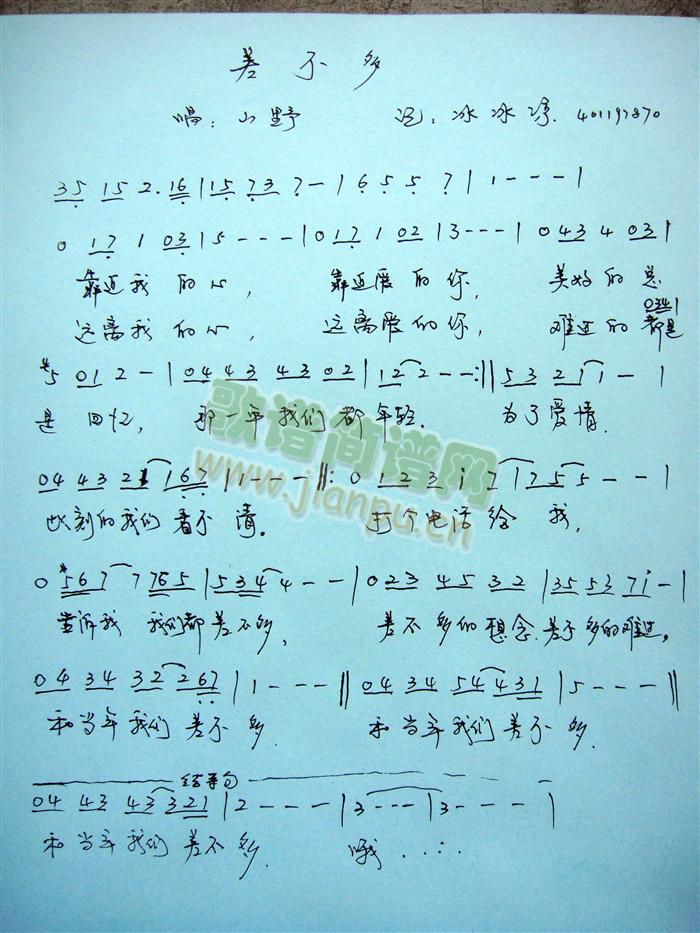 差不多
唱：山野 记：冰冰 401197870
35 15 2. 16 | 15 73 7 - | 6 5 5 7 | 1 - - - |
0 17 1 03 | 5 - - - | 0 17 1 02 | 3 - - - | 0 43 4 03 |
靠近我的心， 靠近爱的你， 美好的总
远离我的心， 远离爱的你， 难过的都是
0341
#5 012 - | 04 43 43 02 | 12 2 - - :|| 53 21 1 - |
是回忆， 那一年我们都年轻. 为了爱情.
04 43 21 167 | 1 - - - ||: 0 12 3 i 7 | 75 5 - - |
此刻的我们看不清。 打个电话给我，
歌谱简谱网
www.jianpu.cn
0 #567 7 765 | 534 4 - - | 0 23 45 32 | 35 53 7i - |
告诉我 我们都差不多， 差不多的想念.差不多的难过。
04 34 32 267 | 1 - - - || 04 34 54 431 | 5 - - - ||
和当年我们差不多. 和当年我们差不多.
结束句
04 43 43 321 | 2 - - - | 3 - - - | 3 - - - |
和当年我们差不多. 哦......